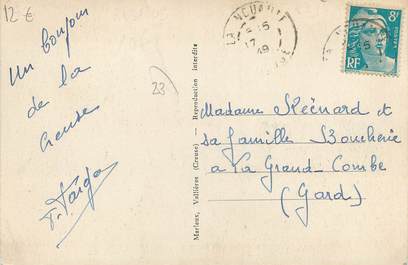 12 €
Un bonjour
de la
Creuse
23
Merleux, Vallières (Creuse) — Reproduction interdite
LA NOUAILLE
17
49
8F
RF
Madame
sa famille Boucherie
a La Grand-Combe
(Gard)